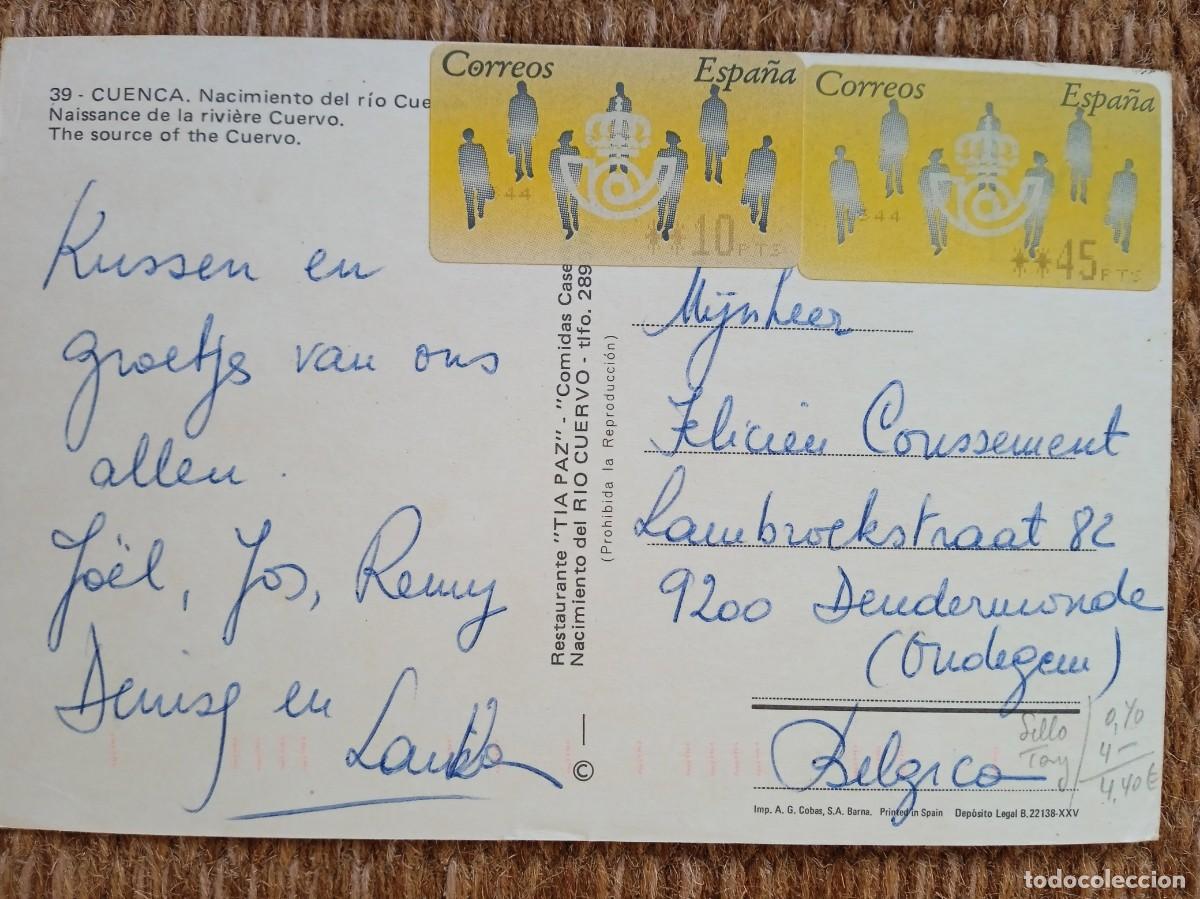 39 - CUENCA. Nacimiento del río Cue
Naissance de la rivière Cuervo.
The source of the Cuervo.
Correos España
344
**10 PTS
Correos España
1344
**45 PTS
Kussen en
groetjes van ons
allen.
Joël, Jos, Remy
Denise en
Restaurante "TIA PAZ" - "Comidas Case
Nacimiento del RIO CUERVO - tlfo. 289
(Prohibida la Reproducción)
©
Mijnheer
Felicien Coussement
Lambroekstraat 82
9200 Dendermonde
(Oudegem)
Belgica
Sello 0,40
4 -
4,40€
Imp. A. G. Cobas, S.A. Barna. Printed in Spain Depósito Legal B.22138-XXV
todocoleccion